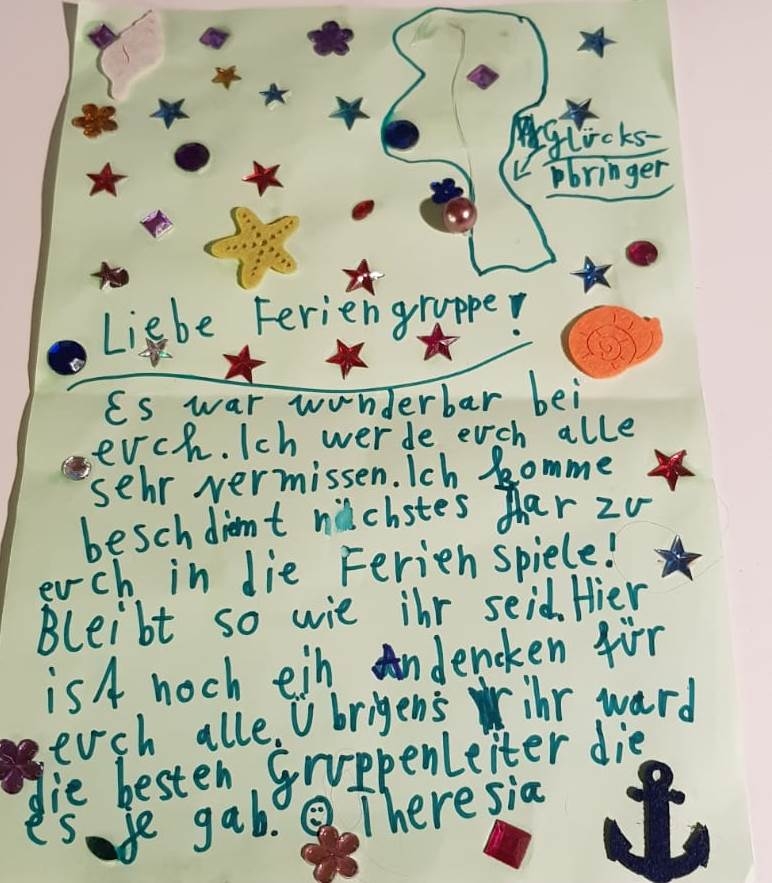 Glücks-
bringer
Liebe Feriengruppe!
Es war wunderbar bei
euch. Ich werde euch alle
sehr vermissen. Ich komme
beschdimt nächstes Jhar zu
euch in die Ferienspiele!
Bleibt so wie ihr seid. Hier
ist noch ein Andencken für
euch alle. Übrigens ihr ward
die besten Gruppenleiter die
es je gab. ☺ Theresia